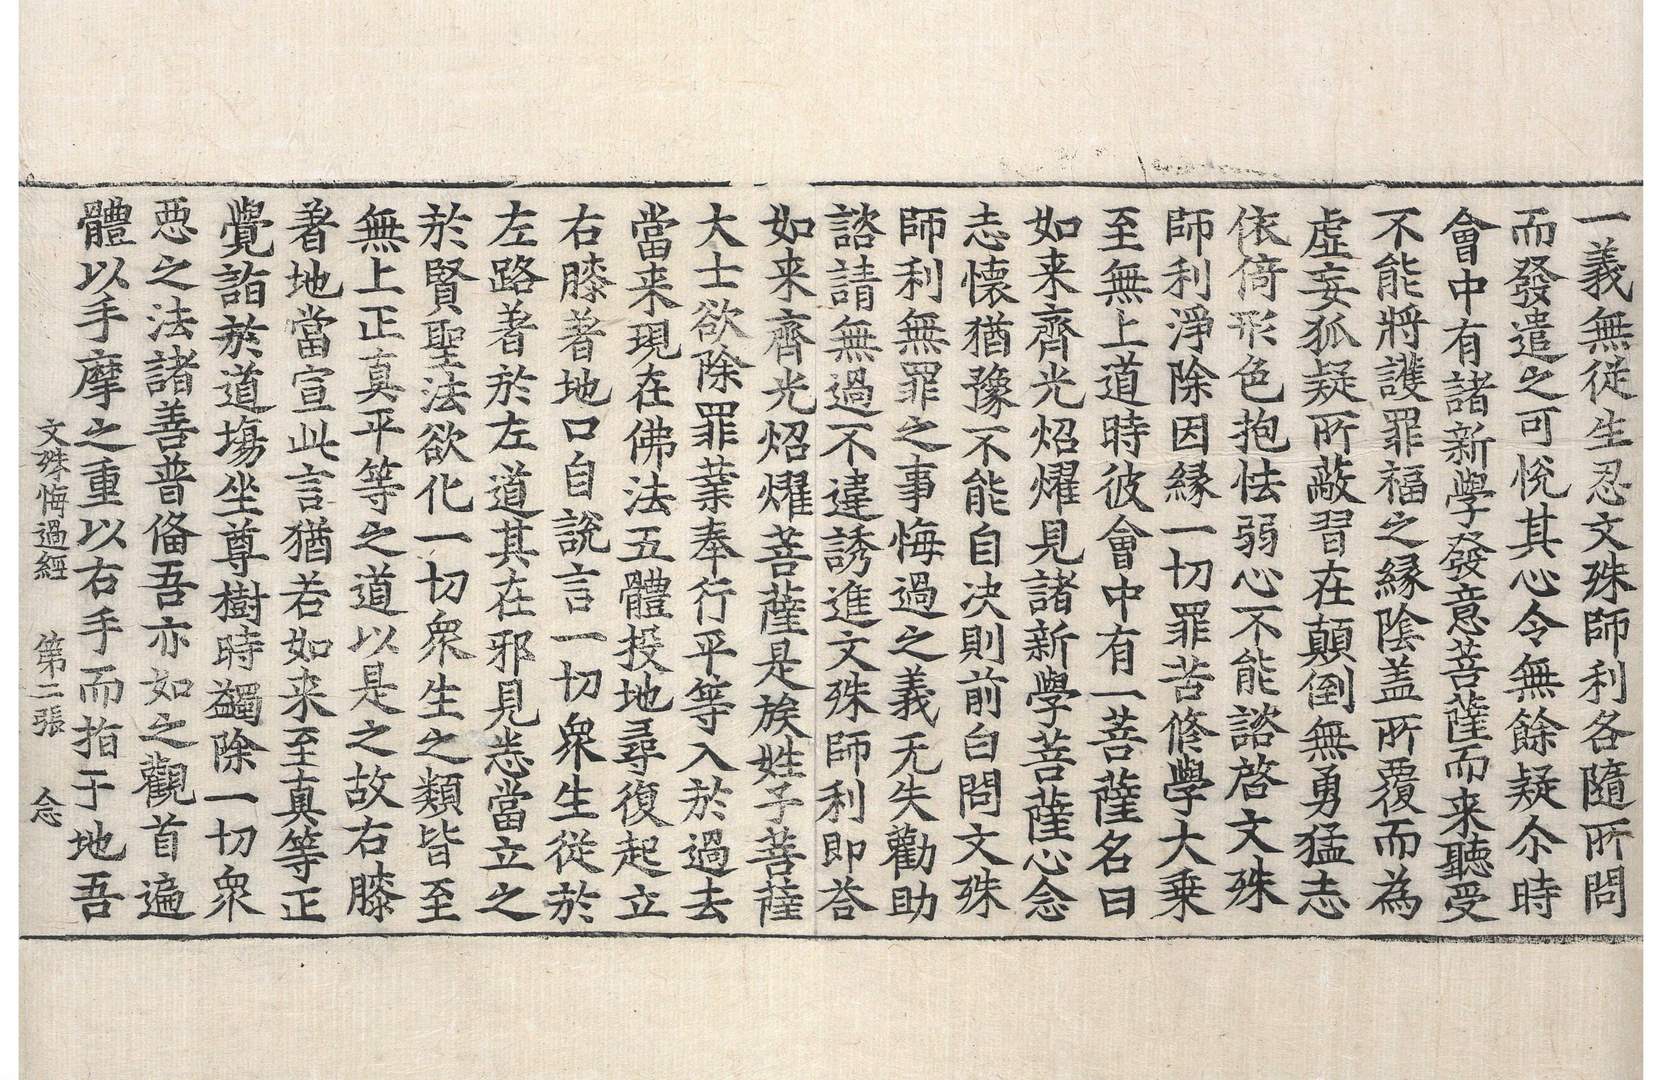 一義無從生忍文殊師利各隨所問
而發遣之可悅其心令無餘疑尒時
會中有諸新學發意菩薩而来聽受
不能將護罪福之緣陰盖所覆而為
虛妄狐疑所蔽習在顛倒無勇猛志
依倚形色抱怯弱心不能諮啓文殊
師利淨除因緣一切罪苦修學大乗
至無上道時彼會中有一菩薩名曰
如来齊光炤燿見諸新學菩薩心念
志懷猶豫不能自决則前白問文殊
師利無罪之事悔過之義无失勸助
諮請無過不違誘進文殊師利即荅
如来齊光炤燿菩薩是族姓子菩薩
大士欲除罪業奉行平等入於過去
當来現在佛法五體投地尋復起立
右膝著地口自說言一切衆生從於
左路著於左道其在邪見恙當立之
於賢聖法欲化一切衆生之類皆至
無上正真平等之道以是之故右膝
著地當宣此言猶若如来至真等正
覺詣於道塲坐尊樹時蠲除一切衆
惡之法諸善普俻吾亦如之觀首遍
體以手摩之重以右手而指于地吾
文殊悔過經　第二張　念